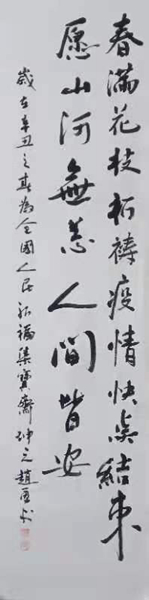 春满花枝祈祷疫情快点结束
愿山河無恙人间皆安
歲在辛丑之春為全國人民祈福集寶齋坤之趙